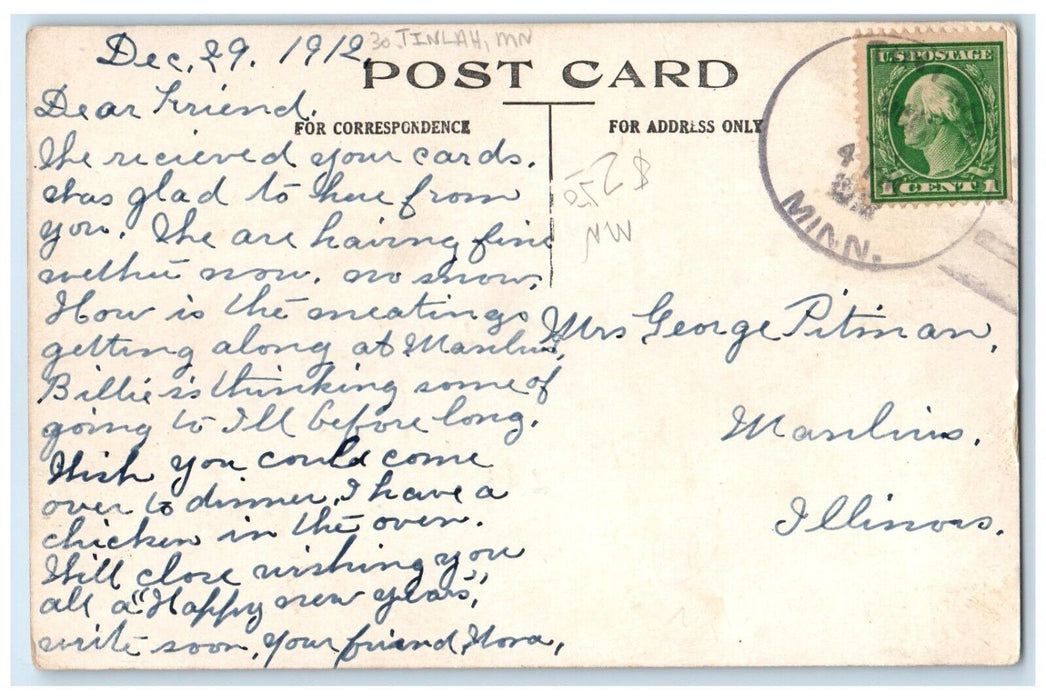 Dec. 29. 1912.
30 TINLAH, MN
POST CARD
Dear Friend.
FOR CORRESPONDENCE
FOR ADDRESS ONLY
We recieved your cards.
was glad to here from
you. We are having fine
wethut now. no snow.
How is the meatings
getting along at Manlius,
Billie is thinking some of
going to Ill before long.
Wish you could come
over to dinner, I have a
chicken in the oven.
Will close wishing you
all a "Happy new years",
write soon, your friend, Nora,
U.S. POSTAGE
1 CENT 1
MINN.
NW
Mrs George Pitman,
Manlius.
Illinois.